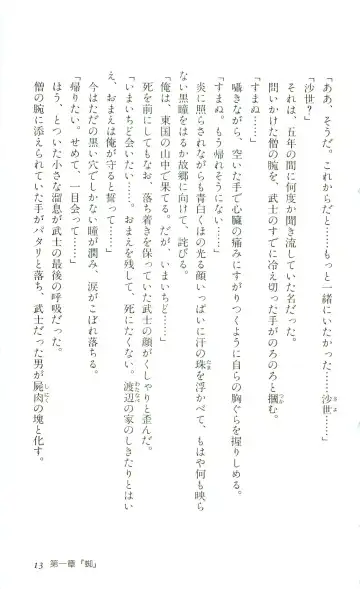 「ああ、そうだ。これからだと……もっと一緒にいたかった……沙世……」
「沙世？」
それは、五年の間に何度か聞き流していた名だった。
問いかけた僧の腕を、武士のすでに冷え切った手がのろのろと摑む。
「すまぬ……」
囁きながら、空いた手で心臓の痛みにすがりつくように自らの胸ぐらを握りしめる。
「すまぬ。もう帰れそうにない……」
炎に照らされながらも青白くほの光る顔いっぱいに汗の珠を浮かべて、もはや何も映ら
ない黒瞳をはるか故郷に向けて、詫びる。
「俺は、東国の山中で果てる。だが、いまいちど……」
死を前にしてもなお、落ち着きを保っていた武士の顔がくしゃりと歪んだ。
「いまいちど会いたい……。おまえを残して、死にたくない。渡辺の家のしきたりとはい
え、おまえは俺が守ると誓って……」
今はただの黒い穴でしかない瞳が潤み、涙がこぼれ落ちる。
「帰りたい。せめて、一目会って……」
ほう、とついた小さな溜息が武士の最後の呼吸だった。
僧の腕に添えられていた手がパタリと落ち、武士だった男が屍肉の塊と化す。
13 第一章「鄙」